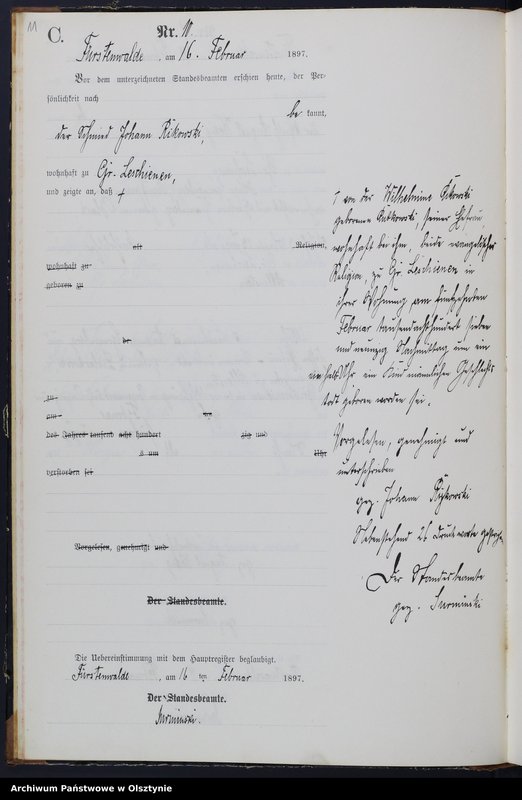 11
C.
Nr. 11.
Fürstenwalde, am 16. Februar 1897.
Vor dem unterzeichneten Standesbeamten erschien heute, der Per-
sönlichkeit nach
be kannt,
der Schmied Johann Rikowski,
wohnhaft zu Gr. Leschienen,
und zeigte an, daß †
alt Religion,
wohnhaft zu
geboren zu
de
zu
am ten
des Jahres tausend acht hundert zig und
s um Uhr
verstorben sei
Vorgelesen, genehmigt und
Der Standesbeamte.
† von der Wilhelmine Rikowski
geborene seiner Ehefrau,
wohnhaft bei ihm, beide evangelischer
Religion, zu Gr. Leschienen in
ihrer Wohnung am fünfzehnten
Februar tausendachthundert sieben
und neunzig Nachmittag um ein
ein halb Uhr ein Kind männlichen Geschlechts
todt geboren worden sei.
Vorgelesen, genehmigt und
unterschrieben
gez. Johann Rykowski
Nebenstehend 26 Druckworte gestrichen
Der Standesbeamte
gez. Surminski
Die Uebereinstimmung mit dem Hauptregister beglaubigt.
Fürstenwalde, am 16 ten Februar 1897.
Der Standesbeamte.
Surminski.
Archiwum Państwowe w Olsztynie